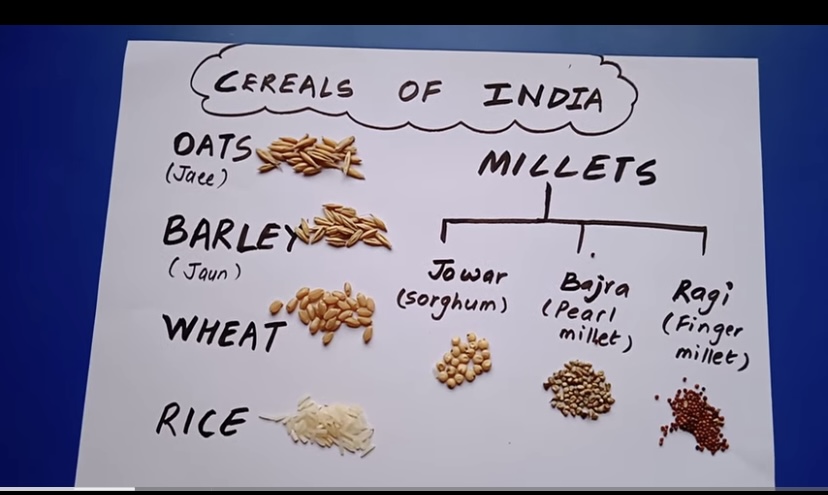 CEREALS OF INDIA
OATS
(Jaee)
BARLEY
(Jaun)
WHEAT
RICE
MILLETS
Jowar
(sorghum)
Bajra
(Pearl
millet)
Ragi
(Finger
millet)